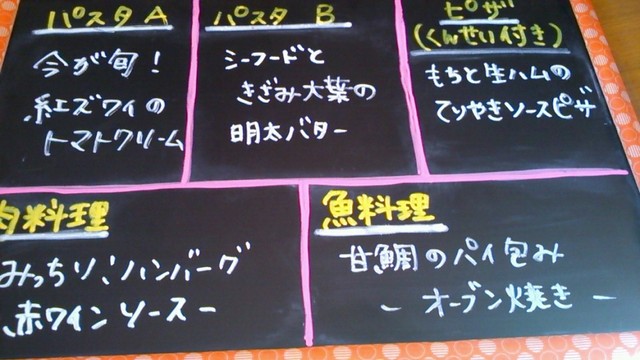 パスタ A
今が旬!
紅ズワイの
トマトクリーム
パスタ B
シーフードと
きざみ大葉の
明太バター
ピザ
(くんせい付き)
もちと生ハムの
てりやきソースピザ
肉料理
みっちり!ハンバーグ
赤ワインソース-
魚料理
甘鯛のパイ包み
- オーブン焼き -